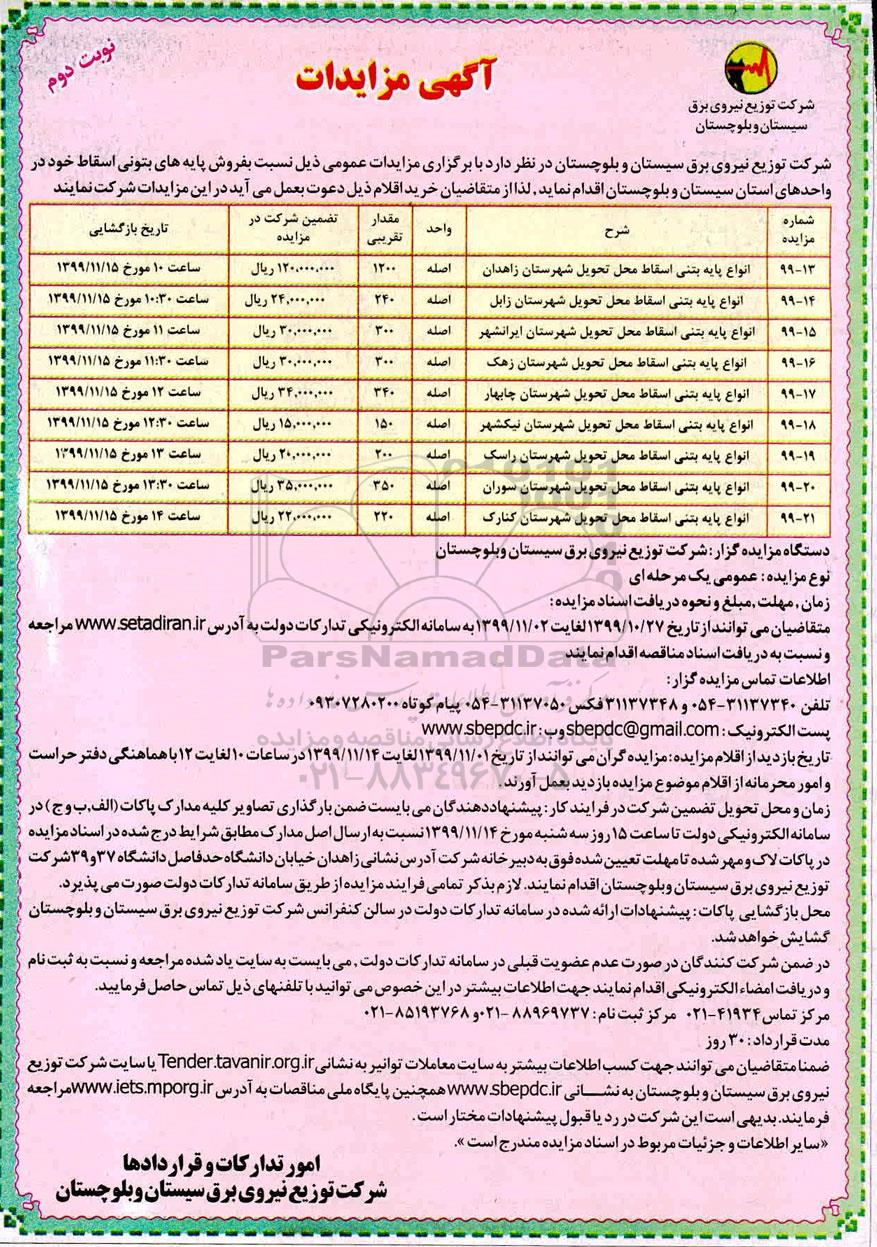 نوبت دوم
آگهی مزایدات
شرکت توزیع نیروی برق
سیستان و بلوچستان
شرکت توزیع نیروی برق سیستان و بلوچستان در نظر دارد با برگزاری مزایدات عمومی ذیل نسبت بفروش پایه های بتونی اسقاط خود در
واحدهای استان سیستان و بلوچستان اقدام نماید , لذا از متقاضیان خرید اقلام ذیل دعوت بعمل می آید در این مزایدات شرکت نمایند
شماره مزایده | شرح | واحد | مقدار تقریبی | تضمین شرکت در مزایده | تاریخ بازگشایی
۹۹-۱۳ | انواع پایه بتنی اسقاط محل تحویل شهرستان زاهدان | اصله | ۱۲۰۰ | ۱۲۰,۰۰۰,۰۰۰ ریال | ساعت ۱۰ مورخ ۱۳۹۹/۱۱/۱۵
۹۹-۱۴ | انواع پایه بتنی اسقاط محل تحویل شهرستان زابل | اصله | ۲۴۰ | ۲۴,۰۰۰,۰۰۰ ریال | ساعت ۱۰:۳۰ مورخ ۱۳۹۹/۱۱/۱۵
۹۹-۱۵ | انواع پایه بتنی اسقاط محل تحویل شهرستان ایرانشهر | اصله | ۳۰۰ | ۳۰,۰۰۰,۰۰۰ ریال | ساعت ۱۱ مورخ ۱۳۹۹/۱۱/۱۵
۹۹-۱۶ | انواع پایه بتنی اسقاط محل تحویل شهرستان زهک | اصله | ۳۰۰ | ۳۰,۰۰۰,۰۰۰ ریال | ساعت ۱۱:۳۰ مورخ ۱۳۹۹/۱۱/۱۵
۹۹-۱۷ | انواع پایه بتنی اسقاط محل تحویل شهرستان چابهار | اصله | ۳۴۰ | ۳۴,۰۰۰,۰۰۰ ریال | ساعت ۱۲ مورخ ۱۳۹۹/۱۱/۱۵
۹۹-۱۸ | انواع پایه بتنی اسقاط محل تحویل شهرستان نیکشهر | اصله | ۱۵۰ | ۱۵,۰۰۰,۰۰۰ ریال | ساعت ۱۲:۳۰ مورخ ۱۳۹۹/۱۱/۱۵
۹۹-۱۹ | انواع پایه بتنی اسقاط محل تحویل شهرستان راسک | اصله | ۲۰۰ | ۲۰,۰۰۰,۰۰۰ ریال | ساعت ۱۳ مورخ ۱۳۹۹/۱۱/۱۵
۹۹-۲۰ | انواع پایه بتنی اسقاط محل تحویل شهرستان سوران | اصله | ۳۵۰ | ۳۵,۰۰۰,۰۰۰ ریال | ساعت ۱۳:۳۰ مورخ ۱۳۹۹/۱۱/۱۵
۹۹-۲۱ | انواع پایه بتنی اسقاط محل تحویل شهرستان کنارک | اصله | ۲۲۰ | ۲۲,۰۰۰,۰۰۰ ریال | ساعت ۱۴ مورخ ۱۳۹۹/۱۱/۱۵
دستگاه مزایده گزار : شرکت توزیع نیروی برق سیستان وبلوچستان
نوع مزایده : عمومی یک مرحله ای
زمان , مهلت ,مبلغ و نحوه دریافت اسناد مزایده :
متقاضیان می توانند از تاریخ ۱۳۹۹/۱۰/۲۷ لغایت ۱۳۹۹/۱۱/۰۲ به سامانه الکترونیکی تدارکات دولت به آدرس www.setadiran.ir مراجعه
و نسبت به دریافت اسناد مناقصه اقدام نمایند
ParsNamadData
اطلاعات تماس مزایده گزار :
تلفن ۳۱۱۳۷۳۴۰-۰۵۴ و ۳۱۱۳۷۳۴۸ فکس ۳۱۱۳۷۰۵۰-۰۵۴ پیام کوتاه ۰۹۳۰۷۲۸۰۲۰۰
پست الکترونیک : sbepdc@gmail.com وب : www.sbepdc.ir
پایگاه اطلاع رسانی مناقصه و مزایده
تاریخ بازدید از اقلام مزایده : مزایده گران می توانند از تاریخ ۱۳۹۹/۱۱/۰۱ لغایت ۱۳۹۹/۱۱/۱۴ در ساعات ۱۰ لغایت ۱۲ با هماهنگی دفتر حراست
و امور محرمانه از اقلام موضوع مزایده بازدید بعمل آورند.
۰۲۱-۸۸۳۴۹۶۷۰-۵
زمان و محل تحویل تضمین شرکت در فرایند کار : پیشنهاددهندگان می بایست ضمن بارگذاری تصاویر کلیه مدارک پاکات (الف,ب و ج) در
سامانه الکترونیکی دولت تا ساعت ۱۵ روز سه شنبه مورخ ۱۳۹۹/۱۱/۱۴ نسبت به ارسال اصل مدارک مطابق شرایط درج شده در اسناد مزایده
در پاکات لاک و مهر شده تا مهلت تعیین شده فوق به دبیرخانه شرکت آدرس نشانی زاهدان خیابان دانشگاه حدفاصل دانشگاه ۳۷ و ۳۹ شرکت
توزیع نیروی برق سیستان وبلوچستان اقدام نمایند. لازم بذکر تمامی فرایند مزایده از طریق سامانه تدارکات دولت صورت می پذیرد.
محل بازگشایی پاکات : پیشنهادات ارائه شده در سامانه تدارکات دولت در سالن کنفرانس شرکت توزیع نیروی برق سیستان و بلوچستان
گشایش خواهد شد.
در ضمن شرکت کنندگان در صورت عدم عضویت قبلی در سامانه تدارکات دولت , می بایست به سایت یاد شده مراجعه و نسبت به ثبت نام
و دریافت امضاء الکترونیکی اقدام نمایند جهت اطلاعات بیشتر در این خصوص می توانید با تلفنهای ذیل تماس حاصل فرمایید.
مرکز تماس ۴۱۹۳۴-۰۲۱ مرکز ثبت نام : ۸۸۹۶۹۷۳۷ -۰۲۱ و ۸۵۱۹۳۷۶۸-۰۲۱
مدت قرارداد : ۳۰ روز
ضمنا متقاضیان می توانند جهت کسب اطلاعات بیشتر به سایت معاملات توانیر به نشانی Tender.tavanir.org.ir یا سایت شرکت توزیع
نیروی برق سیستان و بلوچستان به نشـــانی www.sbepdc.ir همچنین پایگاه ملی مناقصات به آدرس www.iets.mporg.ir مراجعه
فرمایند. بدیهی است این شرکت در رد یا قبول پیشنهادات مختار است .
«سایر اطلاعات و جزئیات مربوط در اسناد مزایده مندرج است ».
امور تدارکات و قراردادها
شرکت توزیع نیروی برق سیستان وبلوچستان